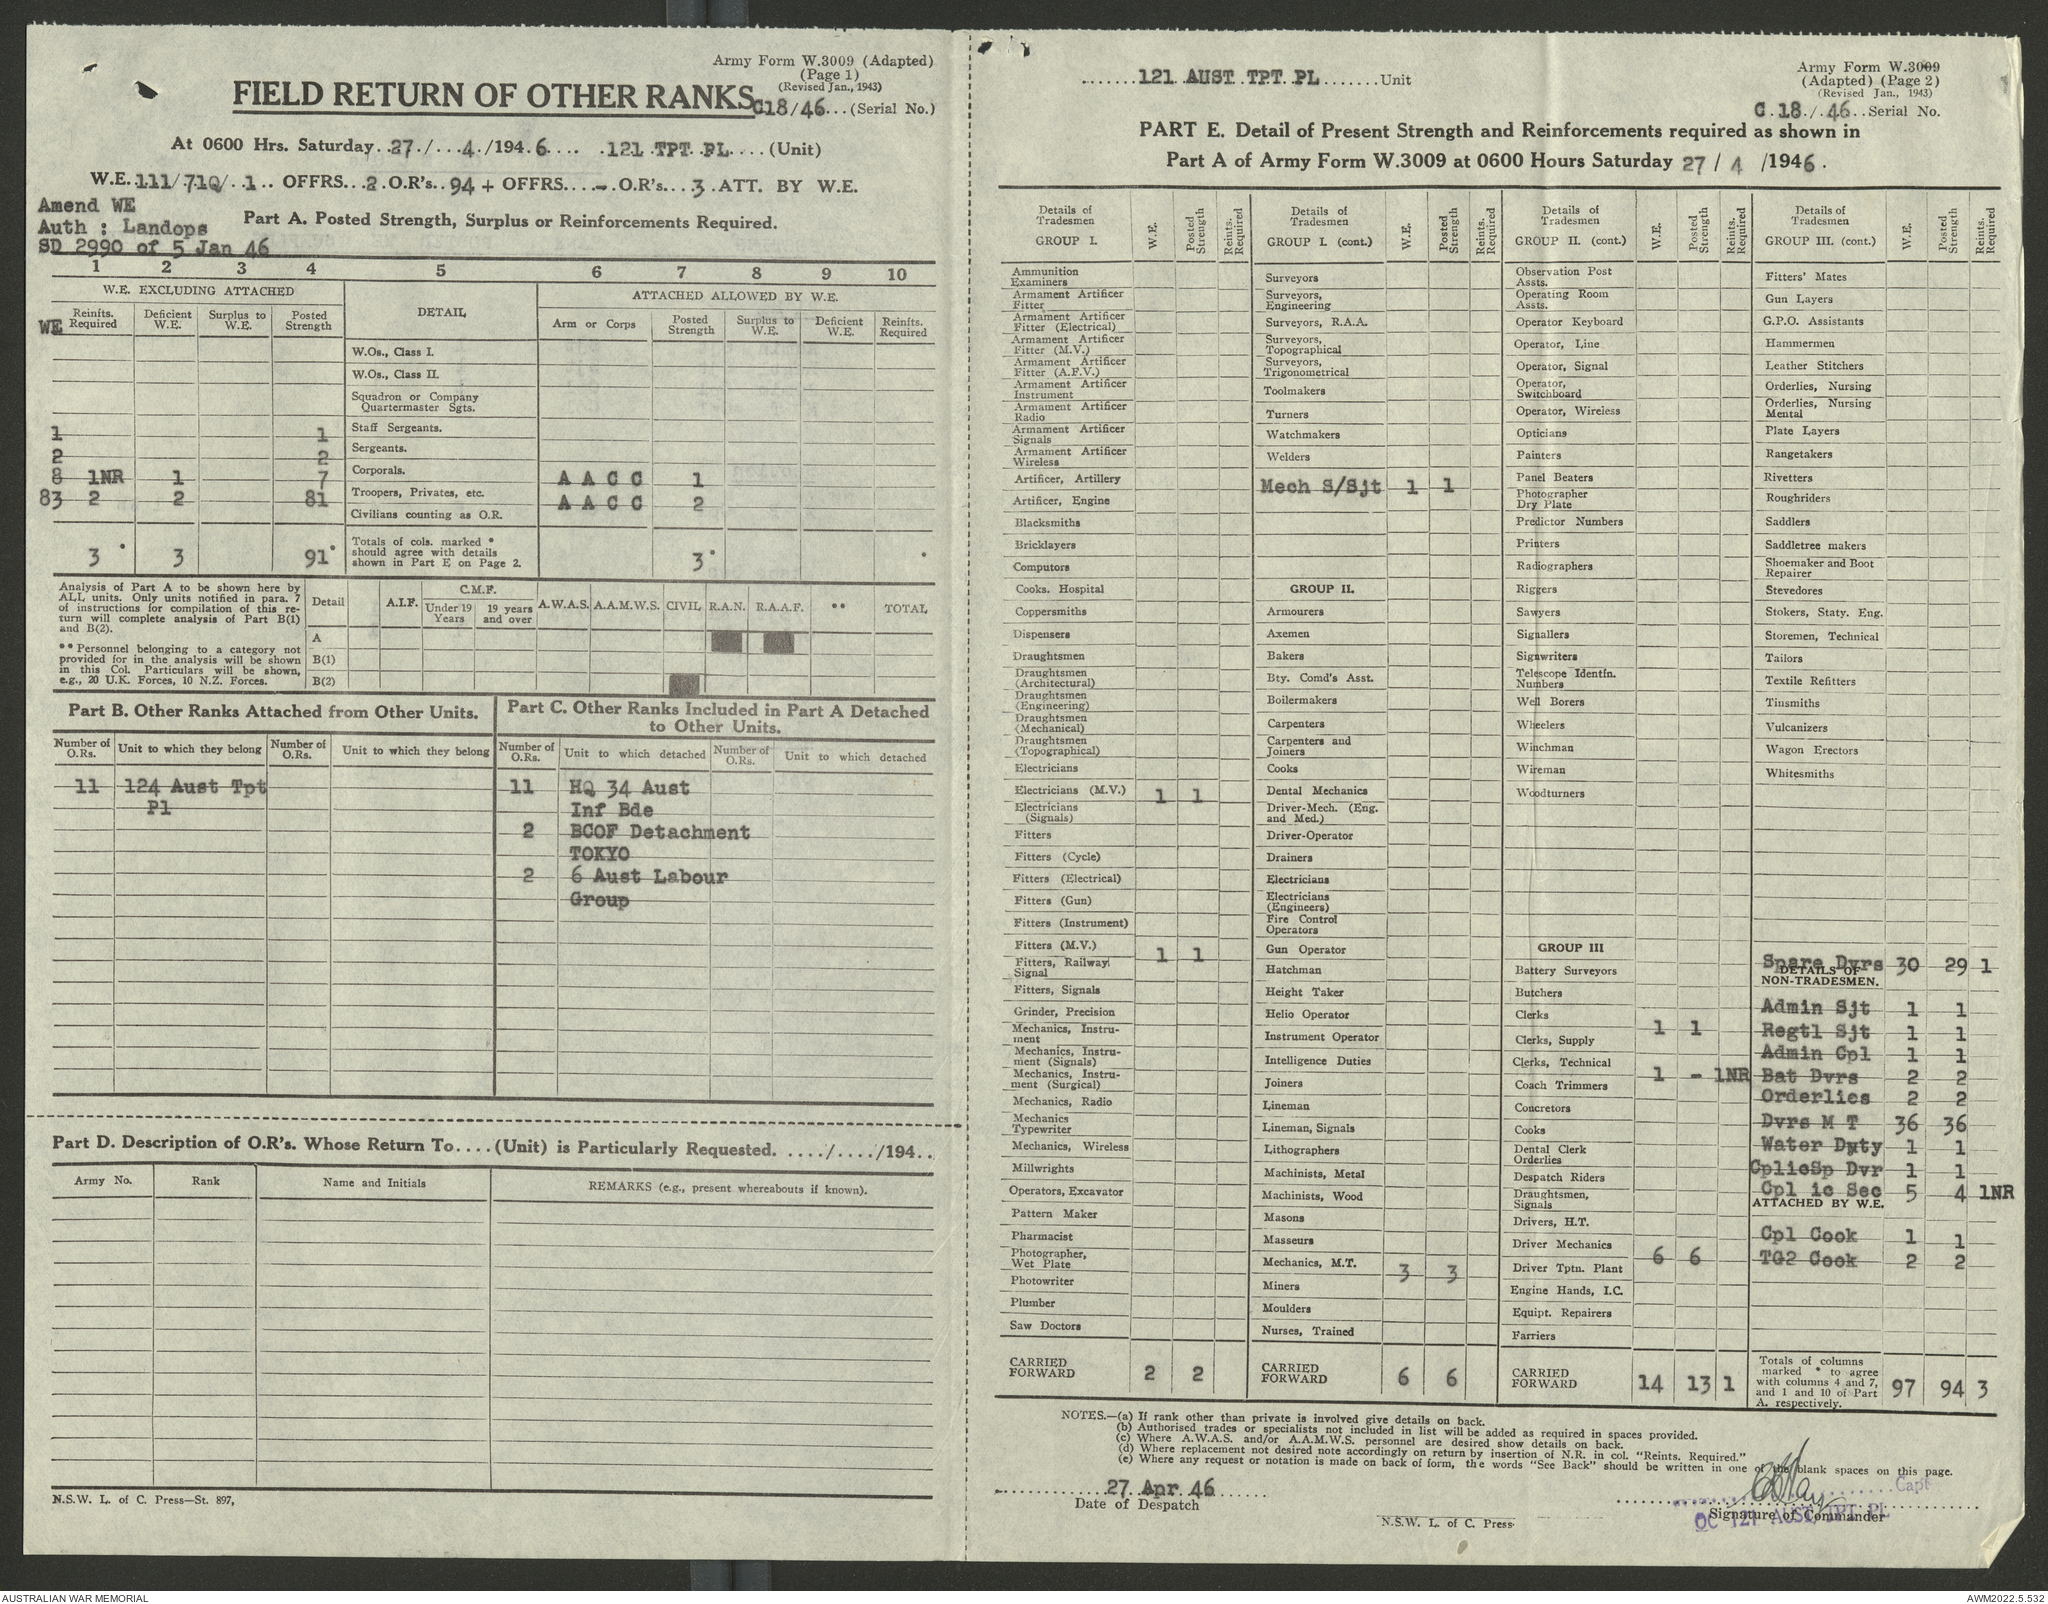 Army Form W.3009 (Adapted)
(Page 1)
(Revised Jan., 1943)
FIELD RETURN OF OTHER RANKS
C18/46...(Serial No.)
At 0600 Hrs. Saturday..27./...4./194.6.... .121 TPT PL....(Unit)
W.E.111/71Q/..1.. OFFRS...2.O.R's..94 + OFFRS....-.O.R's...3.ATT. BY W.E.
Amend WE
Auth : Landops
SD 2990 of 5 Jan 46
Part A. Posted Strength, Surplus or Reinforcements Required.
1 2 3 4 5 6 7 8 9 10
W.E. EXCLUDING ATTACHED DETAIL ATTACHED ALLOWED BY W.E.
WE Reinfts. Required Deficient W.E. Surplus to W.E. Posted Strength Arm or Corps Posted Strength Surplus to W.E. Deficient W.E. Reinfts. Required
W.Os., Class I.
W.Os., Class II.
Squadron or Company Quartermaster Sgts.
1 1 Staff Sergeants.
2 2 Sergeants.
8 1NR 1 7 Corporals. A A C C 1
83 2 2 81 Troopers, Privates, etc. A A C C 2
Civilians counting as O.R.
3 * 3 91* Totals of cols. marked * should agree with details shown in Part E on Page 2. 3* *
Analysis of Part A to be shown here by
ALL units. Only units notified in para. 7
of instructions for compilation of this re-
turn will complete analysis of Part B(1)
and B(2).
** Personnel belonging to a category not
provided for in the analysis will be shown
in this Col. Particulars will be shown,
e.g., 20 U.K. Forces, 10 N.Z. Forces.
Detail A.I.F. C.M.F. Under 19 Years 19 years and over A.W.A.S. A.A.M.W.S. CIVIL R.A.N. R.A.A.F. ** TOTAL
A
B(1)
B(2)
Part B. Other Ranks Attached from Other Units.
Number of O.Rs. Unit to which they belong Number of O.Rs. Unit to which they belong
11 124 Aust Tpt
Pl
Part C. Other Ranks Included in Part A Detached
to Other Units.
Number of O.Rs. Unit to which detached Number of O.Rs. Unit to which detached
11 HQ 34 Aust
Inf Bde
2 BCOF Detachment
TOKYO
2 6 Aust Labour
Group
Part D. Description of O.R's. Whose Return To....(Unit) is Particularly Requested. ..../..../194..
Army No. Rank Name and Initials REMARKS (e.g., present whereabouts if known).
N.S.W. L. of C. Press—St. 897,
.......121 AUST TPT PL.......Unit
Army Form W.3009
(Adapted) (Page 2)
(Revised Jan., 1943)
C.18/.46..Serial No.
PART E. Detail of Present Strength and Reinforcements required as shown in
Part A of Army Form W.3009 at 0600 Hours Saturday 27 / 4 /1946.
Details of Tradesmen GROUP I. W.E. Posted Strength Reints. Required
Ammunition Examiners
Armament Artificer Fitter
Armament Artificer Fitter (Electrical)
Armament Artificer Fitter (M.V.)
Armament Artificer Fitter (A.F.V.)
Armament Artificer Instrument
Armament Artificer Radio
Armament Artificer Signals
Armament Artificer Wireless
Artificer, Artillery
Artificer, Engine
Blacksmiths
Bricklayers
Computors
Cooks. Hospital
Coppersmiths
Dispensers
Draughtsmen
Draughtsmen (Architectural)
Draughtsmen (Engineering)
Draughtsmen (Mechanical)
Draughtsmen (Topographical)
Electricians
Electricians (M.V.) 1 1
Electricians (Signals)
Fitters
Fitters (Cycle)
Fitters (Electrical)
Fitters (Gun)
Fitters (Instrument)
Fitters (M.V.) 1 1
Fitters, Railway Signal
Fitters, Signals
Grinder, Precision
Mechanics, Instru-ment
Mechanics, Instru-ment (Signals)
Mechanics, Instru-ment (Surgical)
Mechanics, Radio
Mechanics Typewriter
Mechanics, Wireless
Millwrights
Operators, Excavator
Pattern Maker
Pharmacist
Photographer, Wet Plate
Photowriter
Plumber
Saw Doctors
CARRIED FORWARD 2 2
Details of Tradesmen GROUP I. (cont.) W.E. Posted Strength Reints. Required
Surveyors
Surveyors, Engineering
Surveyors, R.A.A.
Surveyors, Topographical
Surveyors, Trigonometrical
Toolmakers
Turners
Watchmakers
Welders
Mech S/Sjt 1 1
GROUP II.
Armourers
Axemen
Bakers
Bty. Comd's Asst.
Boilermakers
Carpenters
Carpenters and Joiners
Cooks
Dental Mechanics
Driver-Mech. (Eng. and Med.)
Driver-Operator
Drainers
Electricians
Electricians (Engineers)
Fire Control Operators
Gun Operator
Hatchman
Height Taker
Helio Operator
Instrument Operator
Intelligence Duties
Joiners
Lineman
Lineman, Signals
Lithographers
Machinists, Metal
Machinists, Wood
Masons
Masseurs
Mechanics, M.T. 3 3
Miners
Moulders
Nurses, Trained
CARRIED FORWARD 6 6
Details of Tradesmen GROUP II. (cont.) W.E. Posted Strength Reints. Required
Observation Post Assts.
Operating Room Assts.
Operator Keyboard
Operator, Line
Operator, Signal
Operator, Switchboard
Operator, Wireless
Opticians
Painters
Panel Beaters
Photographer Dry Plate
Predictor Numbers
Printers
Radiographers
Riggers
Sawyers
Signallers
Signwriters
Telescope Identfn. Numbers
Well Borers
Wheelers
Winchman
Wireman
Woodturners
GROUP III
Battery Surveyors
Butchers
Clerks 1 1
Clerks, Supply
Clerks, Technical
Coach Trimmers 1 - 1NR
Concretors
Cooks
Dental Clerk Orderlies
Despatch Riders
Draughtsmen, Signals
Drivers, H.T.
Driver Mechanics 6 6
Driver Tptn. Plant
Engine Hands, I.C.
Equipt. Repairers
Farriers
CARRIED FORWARD 14 13 1
Details of Tradesmen GROUP III. (cont.) W.E. Posted Strength Reints. Required
Fitters' Mates
Gun Layers
G.P.O. Assistants
Hammermen
Leather Stitchers
Orderlies, Nursing
Orderlies, Nursing Mental
Plate Layers
Rangetakers
Rivetters
Roughriders
Saddlers
Saddletree makers
Shoemaker and Boot Repairer
Stevedores
Stokers, Staty. Eng.
Storemen, Technical
Tailors
Textile Refitters
Tinsmiths
Vulcanizers
Wagon Erectors
Whitesmiths
Spare Dvrs 30 29 1
DETAILS OF NON-TRADESMEN.
Admin Sjt 1 1
Regtl Sjt 1 1
Admin Cpl 1 1
Bat Dvrs 2 2
Orderlies 2 2
Dvrs M T 36 36
Water Duty 1 1
CplicSp Dvr 1 1
Cpl ic Sec 5 4 1NR
ATTACHED BY W.E.
Cpl Cook 1 1
TG2 Cook 2 2
Totals of columns marked * to agree with columns 4 and 7, and 1 and 10 of Part A. respectively. 97 94 3
NOTES.—(a) If rank other than private is involved give details on back.
(b) Authorised trades or specialists not included in list will be added as required in spaces provided.
(c) Where A.W.A.S. and/or A.A.M.W.S. personnel are desired show details on back.
(d) Where replacement not desired note accordingly on return by insertion of N.R. in col. "Reints. Required."
(e) Where any request or notation is made on back of form, the words "See Back" should be written in one of the blank spaces on this page.
27 Apr 46
Date of Despatch
Capt
Signature of Commander
OC 121 AUST TPT PL
N.S.W. L. of C. Press
AUSTRALIAN WAR MEMORIAL
AWM2022.5.532